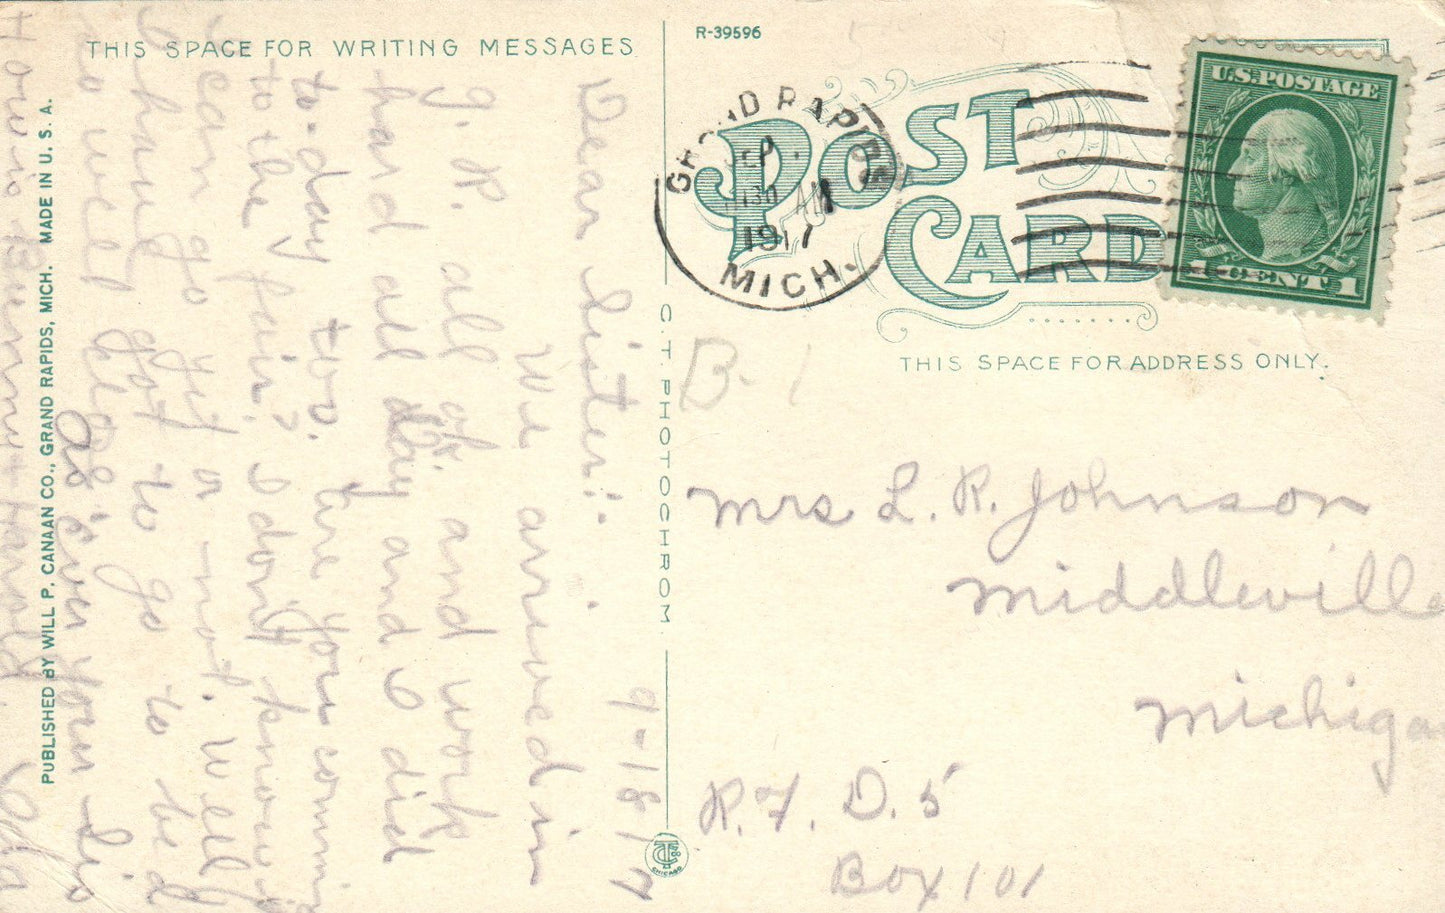 THIS SPACE FOR WRITING MESSAGES
9-18-17
Dear Sister:.
We arrived in
G. R. all O.K. and work
hard all day and I did
to-day too. Are you coming
to the fair? I don't know if
I can go yet or not. Well
I have got to go to bed
so will close
As ever your Sis
Ola
How's Bunny + Harold.
PUBLISHED BY WILL P. CANAAN CO., GRAND RAPIDS, MICH. MADE IN U. S. A.
C. T. PHOTOCHROM
R-39596
POST CARD
GRAND RAPIDS
SEP
1130 AM
1917
MICH.
U.S. POSTAGE
1 CENT 1
THIS SPACE FOR ADDRESS ONLY.
B-1
Mrs L. R. Johnson
Middleville
Michigan
R. F. D. 5
Box 101
CHICAGO